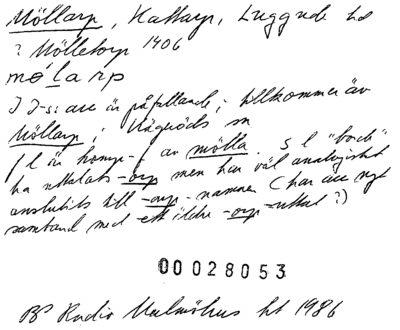 Möllarp, Kattarp, Luggude hd
? Mölletorp 1406
mölarp
är påfallande; tillkommer även
Möllarp i Vägeröds sn
är komp. f. av mölla. s l "borde"
ha uttalats -orp men har väl analogiskt
anslutits till -arp-namnen (har
samband med ett äldre -orp-uttal?)
00028053
BP Radio Malmöhus ht 1986